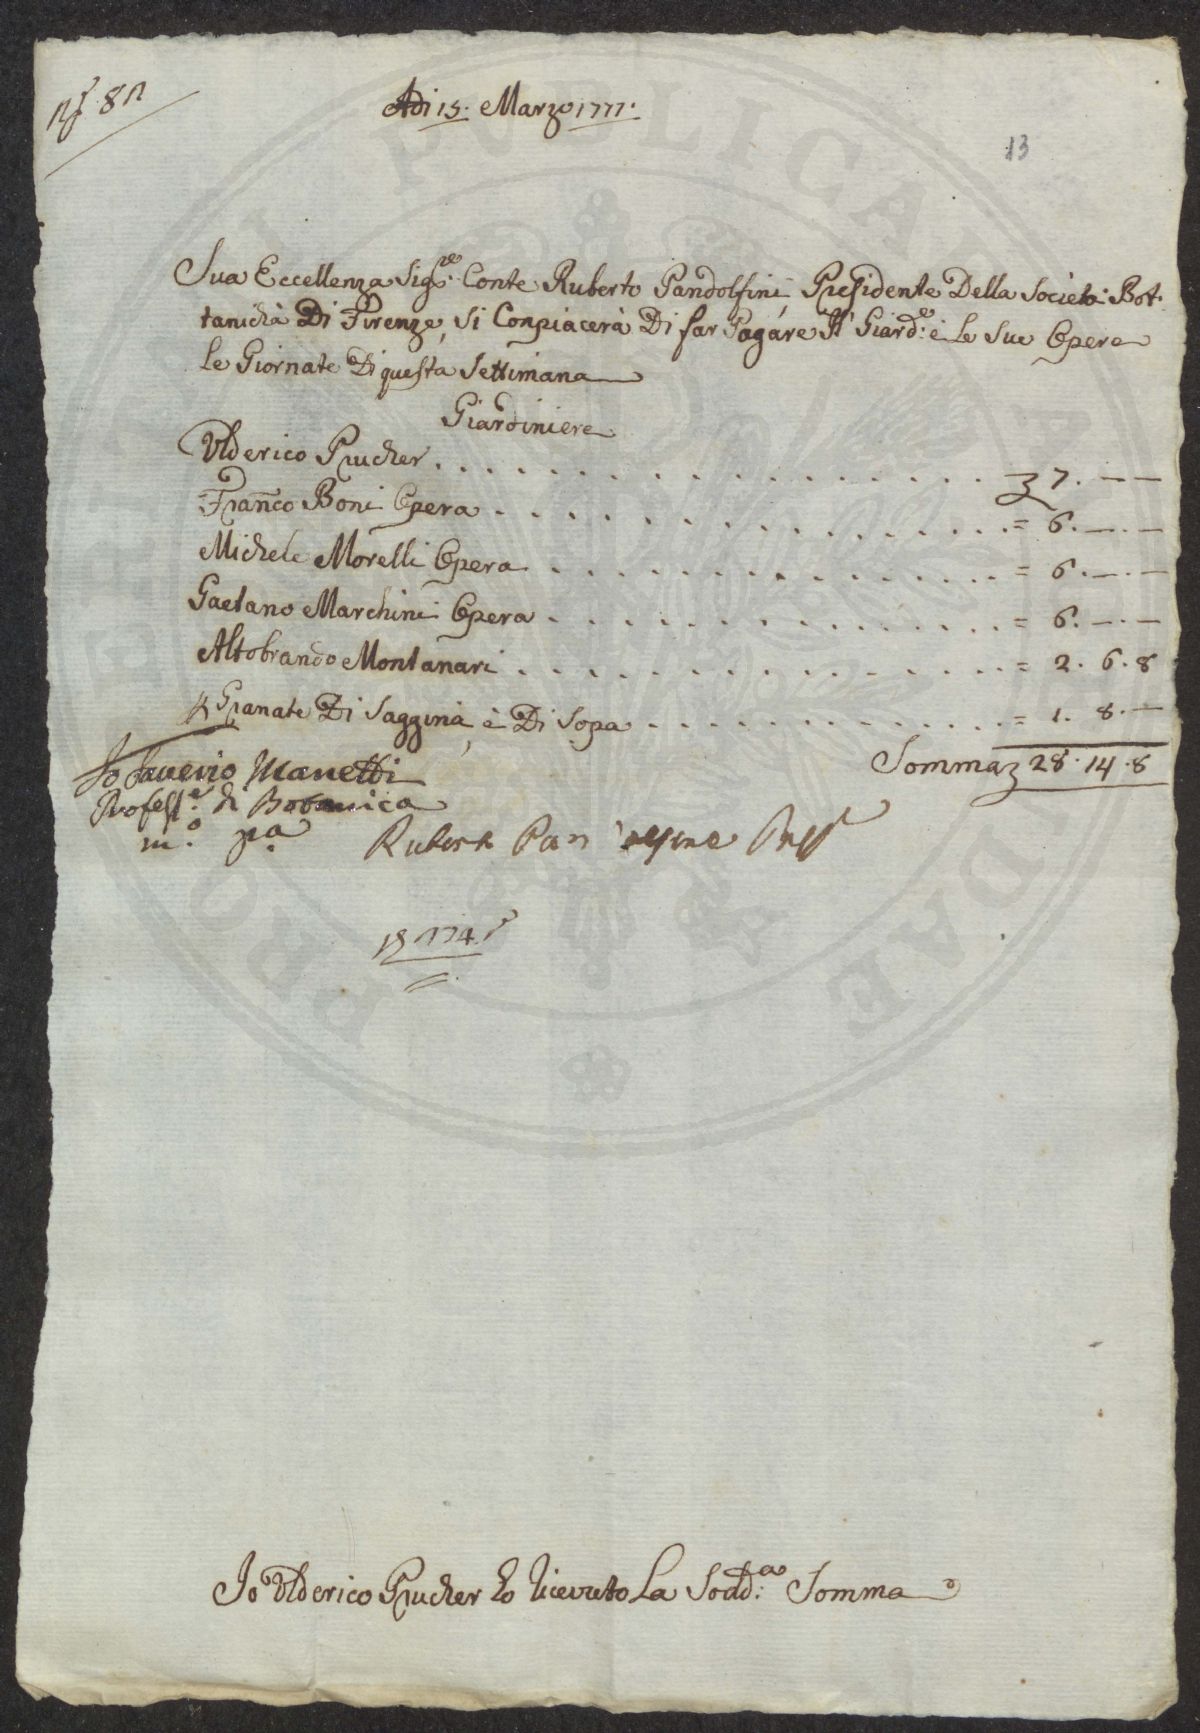 Adi 15. Marzo 1777.
13
Sua Eccellenza Sigr. Conte Ruberto Pandolfini Presidente Della Società Bot-
tanicha Di Firenze, si Conpiacerà Di far Pagare Al Giard.e è Le Sue Opere
le Giornate Di questa Settimana
Giardiniere
Ulderico Prucher . . . . . . . . . . . . . . . . 7. — —
Franco Boni Opera . . . . . . . . . . . . . . = 6. —.—
Michele Morelli Opera . . . . . . . . . . . . . = 6.—.—
Gaetano Marchini Opera . . . . . . . . . . . . . = 6.—.—
Altobrando Montanari . . . . . . . . . . . . . . = 2. 6. 8
Granate Di Saggina è Di Sopa . . . . . . . . . . . = 1. 8.—
Somma 28. 14. 8
Io Saverio Manetti
Profess.e di Botanica
m.o pa
PUBLICA
DAE
PRO
Io Ulderico Prucher ho Ricevuto La Sodd.a Somma